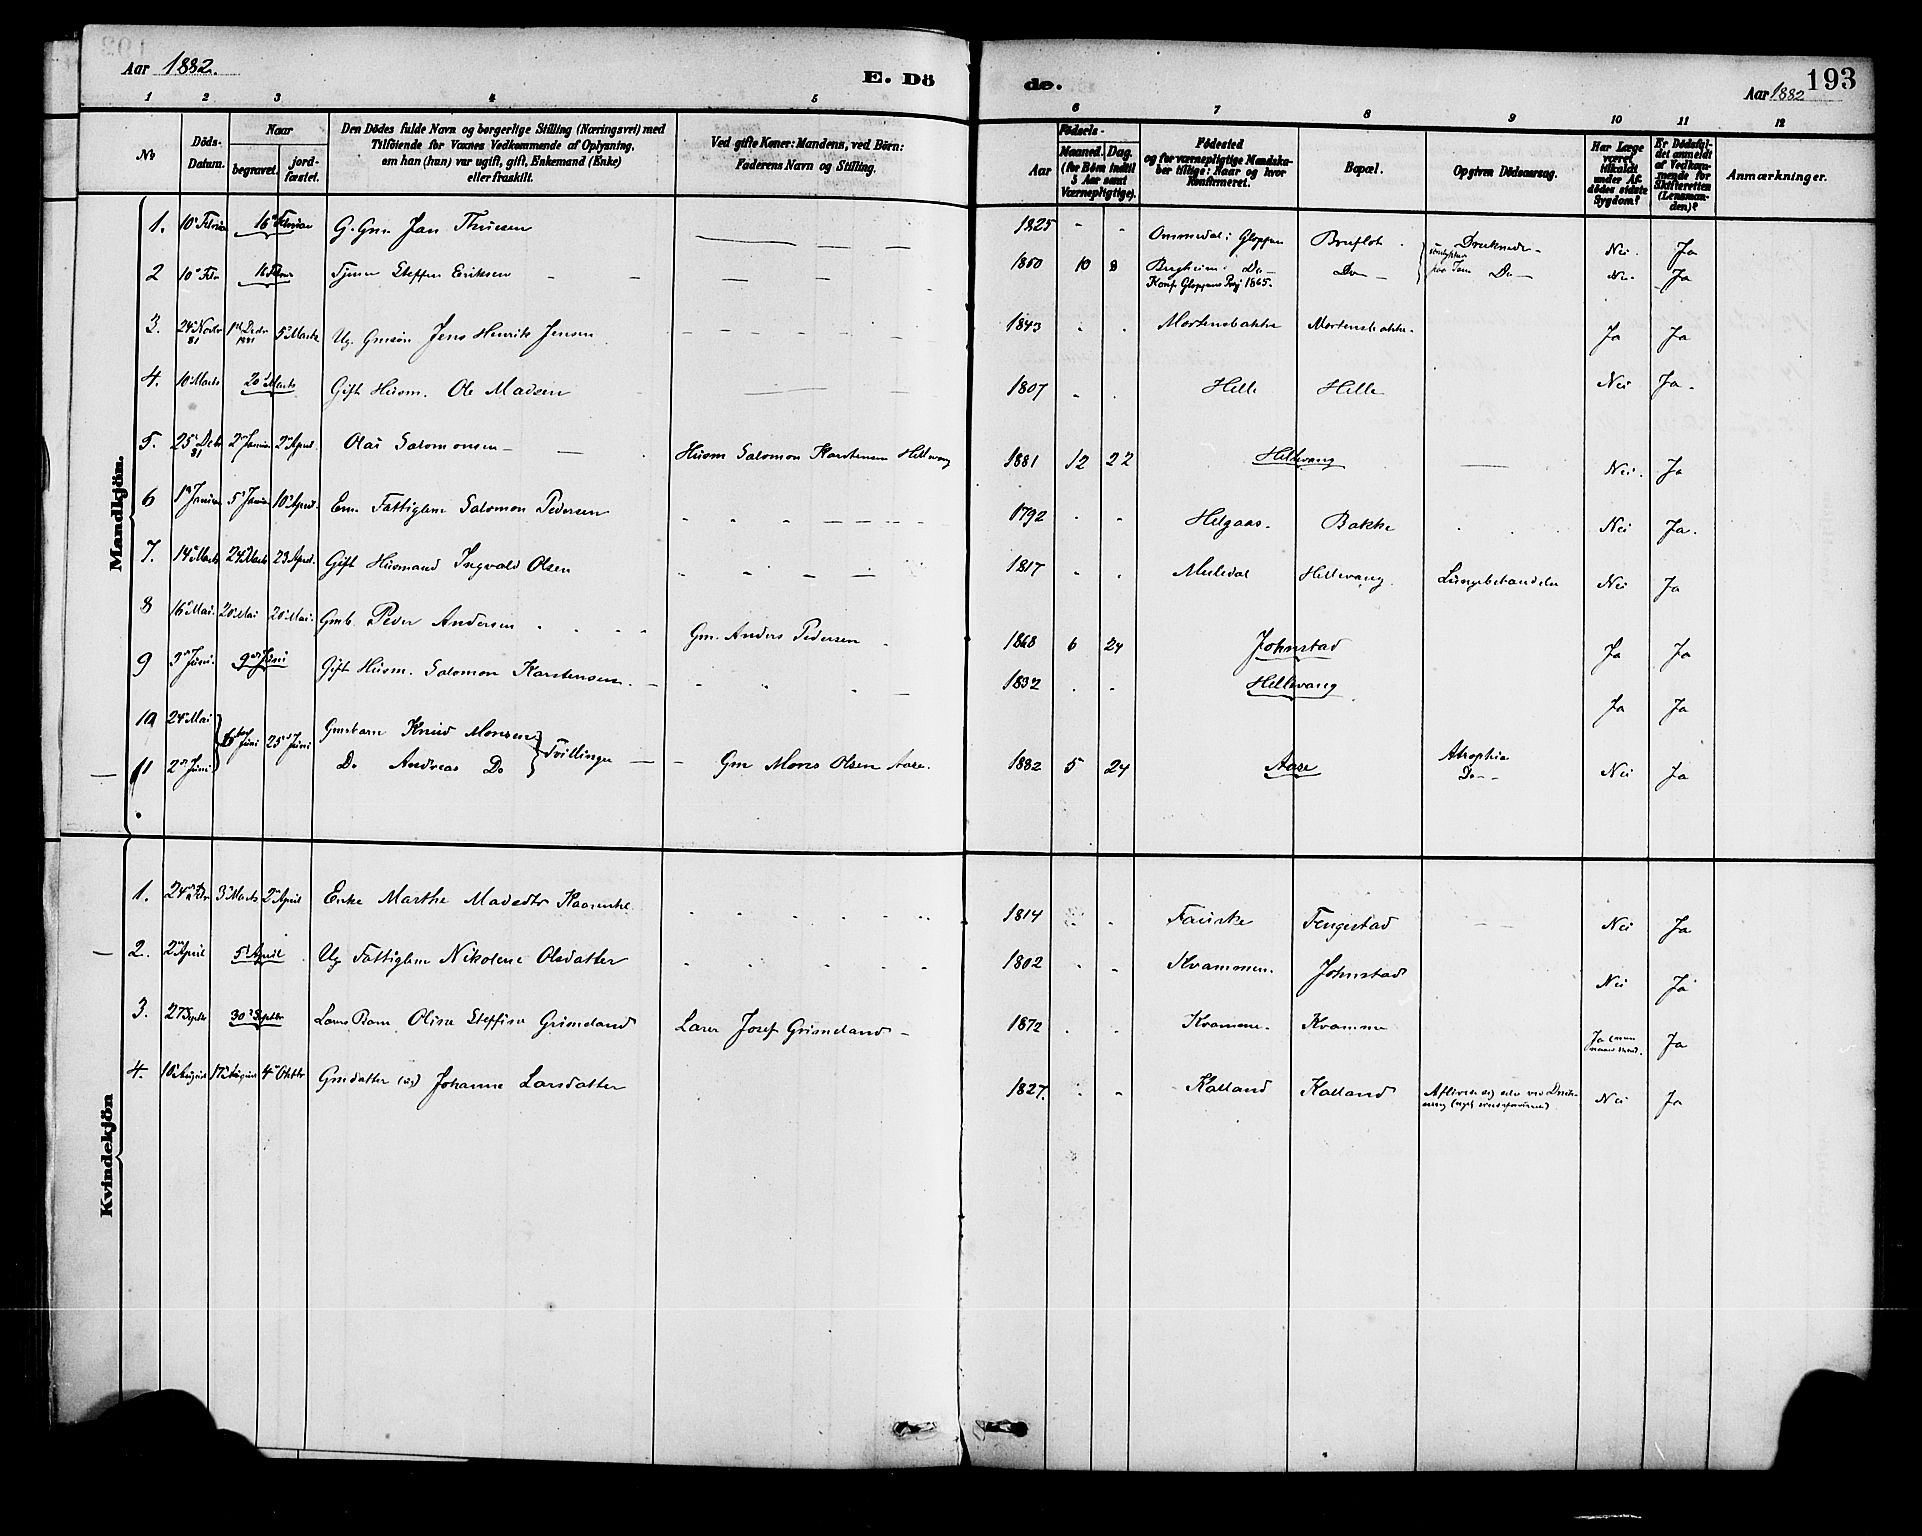 Aar 1882.
E. Dö
de.
Aar 1882
193
1 2 3 4 5 6 7 8 9 10 11 12
No
Döds-Datum.
Naar
begravet.
jord-fæstet.
Den Dödes fulde Navn og borgerlige Stilling (Næringsvei) med
Tilföiende for Voxnes Vedkommende af Oplysning,
om han (hun) var ugift, gift, Enkemand (Enke)
eller fraskilt.
Ved gifte Koner: Mandens, ved Börn:
Faderens Navn og Stilling.
Födsels-
Aar
Maaned. Dag.
(for Börn indtil
5 Aar samt
Værnepligtige).
Födested
og for værnepligtige Mandska-
ber tillige: Naar og hvor
Konfirmeret.
Bopæl.
Opgiven Dödsaarsag.
Har Læge
været
tilkaldt
under Af-
dödes sidste
Sygdom?
Er Dödsfal-
det anmeldt
af Vedkom-
mende for
Skifteretten
(Lensman-
den)?
Anmærkninger.
Mandkjön.
1. 10 Februar 16 Februar G. Gm. Jan Thuesen 1825 Ommedal i Gloppen Bruflot Druknede Nei. Ja
2 10 Febr 16 Febr Tjener Steffen Eriksen 1850 10 8 Bergheim Do Do Do Nei Ja
Konf. Gloppens Prgj 1865.
3. 24 Novbr 81 1 Decbr 1881 5 Marts Ug. Gmsön Jens Henrik Jensen 1843 Mortensbakke Mortensbakke Ja Ja
4. 10 Marts 20 Marts Gift Husm. Ole Madsen 1807 Hille Hille Nei Ja
5. 25 Decbr 81 2 Januar 2 April Olai Salomonsen Husm Salomon Karstensen Hillevang 1881 12 22 Hillevang Nei. Ja
6 1 Januar 5 Januar 10 April Em. Fattiglem Salomon Pedersen 1792 Helgaas. Bakke Nei Ja.
7. 14 Marts 24 Marts 23 April Gift Husmand Ingvald Olsen 1817 Muledal Hillevang. Nei Ja
8 16 Mai. 20 Mai 20 Mai. Gmb. Peder Andersen Gm. Anders Pedersen 1868 6 24 Johnstad Ja Ja
9 3 Juni. 9 Juni Gift Husm. Salomon Karstensen 1832 Hillevang Ja Ja
10 24 Mai 6 Juni 25 Juni Gmsbarn Knud Monsen Tvillinger
11 2 Juni Do Andreas Do Gm Mons Olsen Aase. 1882 5 24 Aase Atrophia Do Nei Ja
Kvindekjön
1. 24 Febr 3 Marts 2 April Enke Marthe Madsdtr 1814 Fauske Tengestad Nei Ja
2. 2 April 5 April Ug Fattiglem Nikoline Olsdatter 1802 Kvammen. Johnstad Nei Ja
3. 27 Septbr 30 Septbr Barn Olina Steffine Grimeland Josef Grimeland 1872 Kvamme. Kvamme Ja Ja
4. 10 August 17 August 4 Oktbr Gmdatter (ug) Johanne Larsdatter 1827. Kalland Kalland Nei Ja